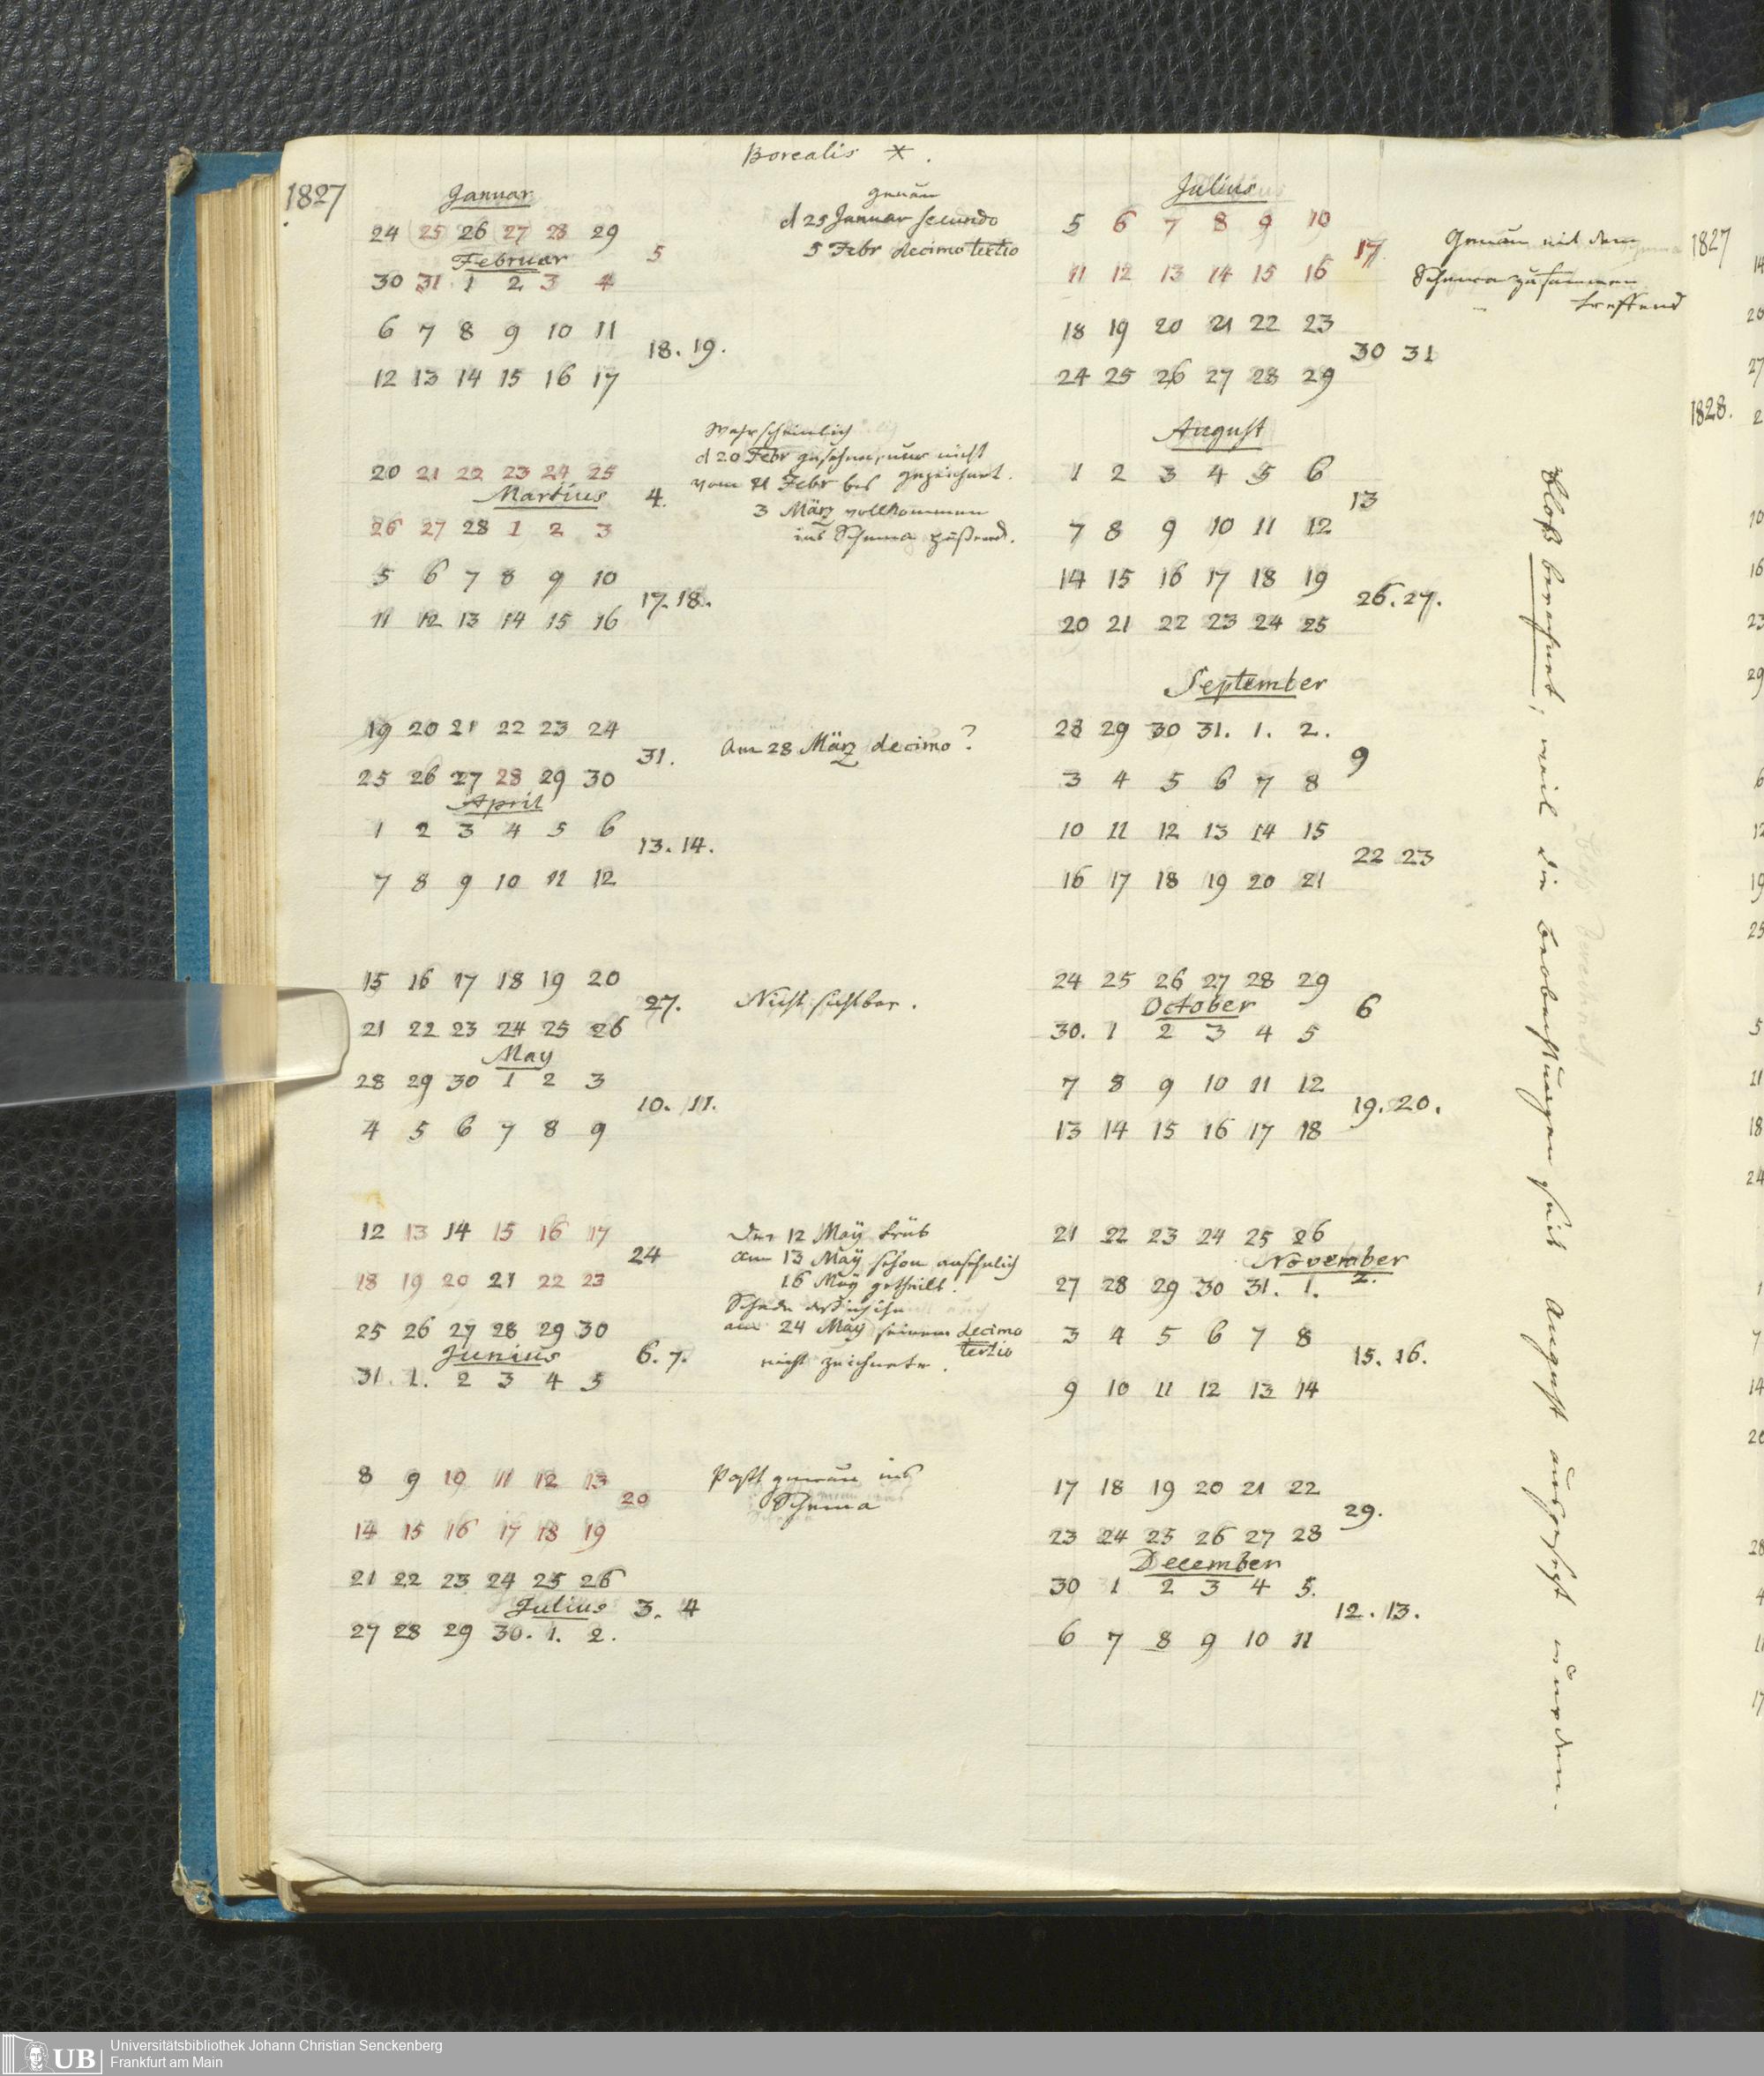 Borealis *.
1827
Januar
24 25 26 27 28 29
Februar
5
30 31 1 2 3 4
6 7 8 9 10 11
18. 19.
12 13 14 15 16 17
genau
d 25 Januar secundo
5 Febr decimo tertio
20 21 22 23 24 25
Martius
4.
26 27 28 1 2 3
5 6 7 8 9 10
17. 18.
11 12 13 14 15 16
Wahrscheinlich
d 20 Febr gesehen, nur nicht
gezeichnet.
vom 21 Febr bis
3 März vollkommen
ins Schema paßend.
19 20 21 22 23 24
31.
25 26 27 28 29 30
April
1 2 3 4 5 6
13. 14.
7 8 9 10 11 12
Am 28 März decimo?
15 16 17 18 19 20
27.
21 22 23 24 25 26
May
28 29 30 1 2 3
10. 11.
4 5 6 7 8 9
Nicht sichtbar.
12 13 14 15 16 17
24
18 19 20 21 22 23
25 26 27 28 29 30
Junius
6. 7.
31. 1. 2 3 4 5
Den 12 Maÿ trüb
am 13 Maÿ schon ansehnlich
16 Maÿ getheilt.
Schade daß ich ihn
am 24 Maÿ seinem decimo
tertio
nicht zeichnete.
8 9 10 11 12 13
20
14 15 16 17 18 19
21 22 23 24 25 26
Julius
3. 4
27 28 29 30. 1. 2.
Paßt genau ins
Schema
Julius
5 6 7 8 9 10
17.
11 12 13 14 15 16
18 19 20 21 22 23
30 31
24 25 26 27 28 29
Genau mit dem
Schema zusammen
treffend
August
1 2 3 4 5 6
13
7 8 9 10 11 12
14 15 16 17 18 19
26. 27.
20 21 22 23 24 25
September
28 29 30 31. 1. 2.
9
3 4 5 6 7 8
10 11 12 13 14 15
22 23
16 17 18 19 20 21
24 25 26 27 28 29
October
6
30. 1 2 3 4 5
7 8 9 10 11 12
19. 20.
13 14 15 16 17 18
21 22 23 24 25 26
November
27 28 29 30 31. 1. 2.
3 4 5 6 7 8
15. 16.
9 10 11 12 13 14
17 18 19 20 21 22
29.
23 24 25 26 27 28
December
30 1 2 3 4 5.
12. 13.
6 7 8 9 10 11
bloß berechnet; weil die Beobachtungen seit August ausgesetzt wurden.
1827
1828.
UB
Universitätsbibliothek Johann Christian Senckenberg
Frankfurt am Main